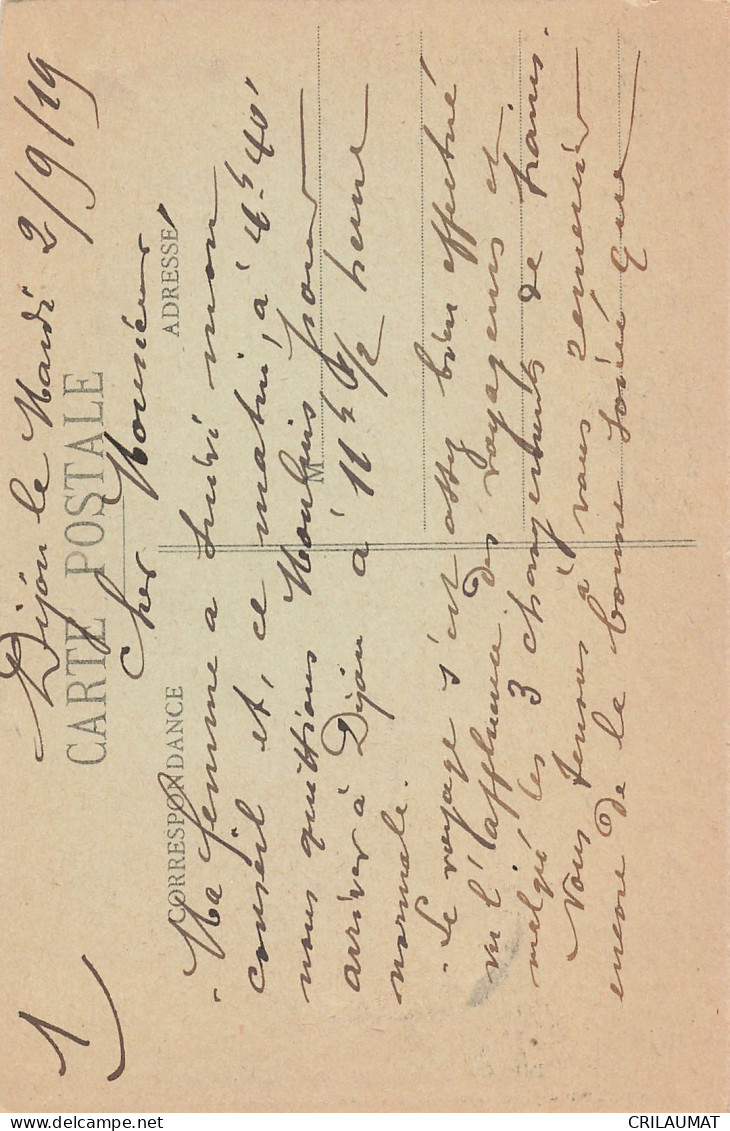 1
Dijon le Mardi 2/9/19
CARTE POSTALE
Cher Monsieur
CORRESPONDANCE
ADRESSE
M
Ma femme a suivi mon
conseil et, ce matin, à 4h 40'
nous quittions Moulins pour
arriver à Dijon à 11h 1/2 heure
normale.
Le voyage s'est assez bien effectué
vu l'affluence des voyageurs et
malgré les 3 changements de trains.
Nous tenons à vous remercier
encore de la bonne soirée que
CRILAUMAT